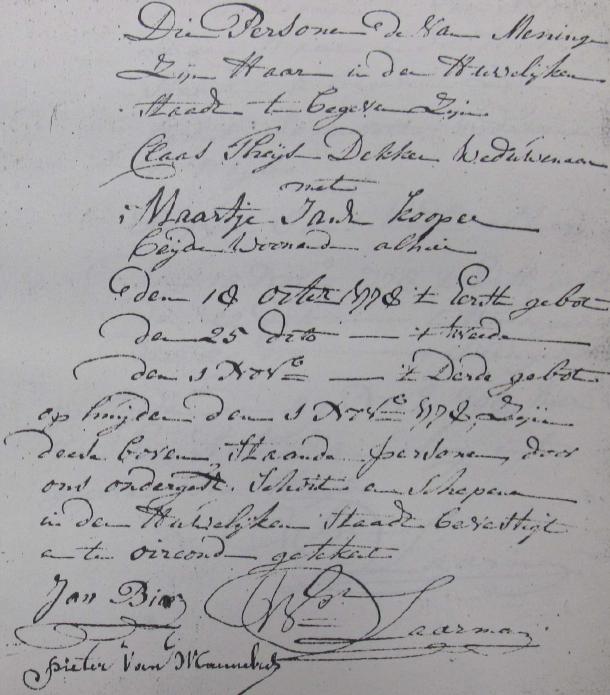 Die Persone de Van Mening
Zijn Haar in den Huwelijken
Staadt te begeven Zijn
Claas Thijs Dekker Weduwenaar
met
Maartje Jans Kooper
beijde Woonende alhier
den 18 octer 1778 't Eerste gebot
den 25 dito — 't tweede
den 1 Novr — 't Derde gebot
op huijden den 1 Novr 1778 Zijn
deese boven Staande persone door
ons ondergest. Schout en Schepene
in den Huwelijken Staadt bevestigt
en te oircond getekent
Jan
Laarman
pieter Van